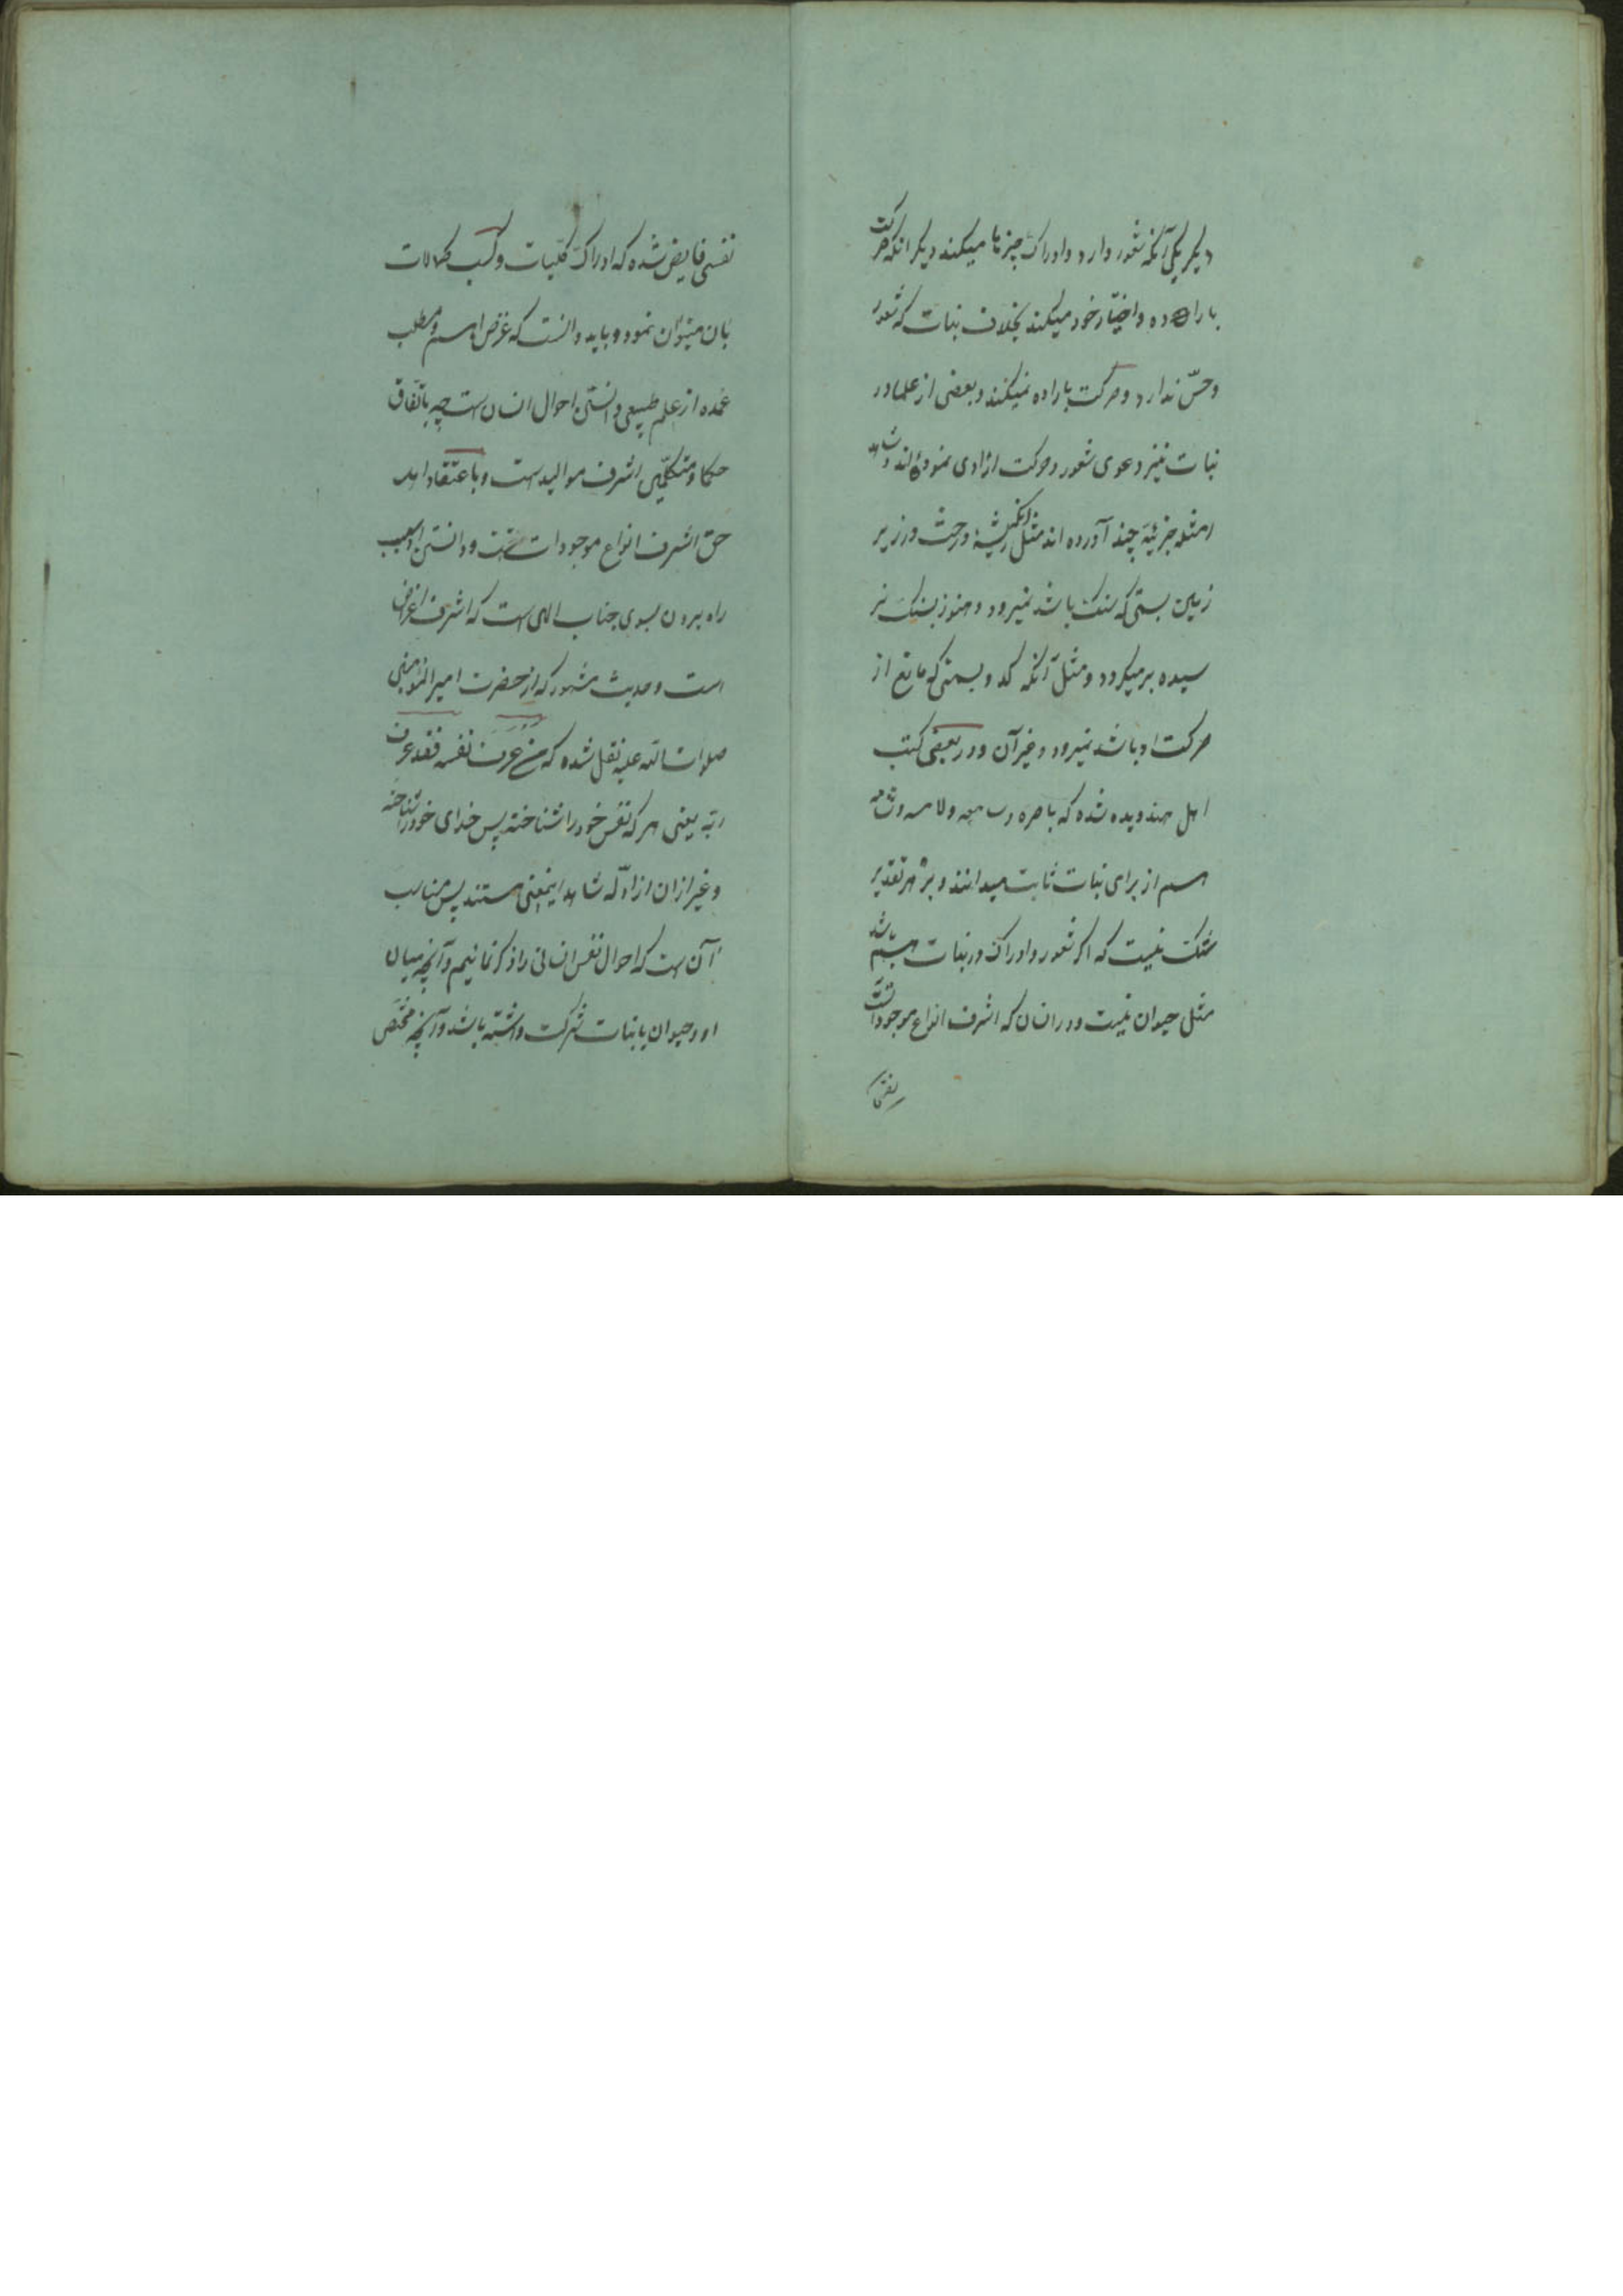 دیکر یکی آنکه شعور دارد و ادراک چیزها میکند دیکر انکه حرکت
باراده و اختیار خود میکند بخلاف نبات که شعور
و حسّ ندارد و حرکت باراده نمیکند و بعضی از علما در
نبات نیز دعوی شعور و حرکت ارادی نموده‌اند و
امثله جزئیّه چند آورده اند مثل آنکه ریشهٔ درخت در زیر
زمین بسمتی که سنک باشد نمیرود و هنوز بسنک نر
سیده برمیکردد و مثل آنکه کدو بسمتی که مانع از
حرکت او باشد نمیرود و غیر آن و در بعضی کتب
اهل هند دیده شده که باصره و سامعه و لامسه و شامه
هم از برای نبات ثابت میدانند و بر هر تقدیر
شک نیست که اکر شعور و ادراک در نبات هم باشد
مثل حیوان نیست و در انسان که اشرف انواع موجودات است
نفسی
نفسی فایض شده که ادراک کلّیات و کسب کمالات
بان میتوان نمود و باید دانست که غرض اهم و مطلب
عمده از علم طبیعی دانستن احوال انسان است چه باتّفاق
حکما و متکلّمین اشرف موالید است و باعتقاد اهل
حق اشرف انواع موجودات است و دانستن او سبب
راه بردن بسوی جناب الهی است که اشرف اغراض
است و حدیث مشهور که از حضرت امیر المؤمنین
صلوات الله علیه نقل شده که من عرف نفسه فقد عرف
ربّه یعنی هر که نفس خود را شناخته پس خدای خود را شناخته
و غیر از ان از ادلّه شاهد اینمعنی هستند پس مناسب
آن است که احوال نفس انسانی را ذکر نمائیم و آنچه میان
او و حیوان یا نبات شرکت داشته باشد و آنچه مختصّ